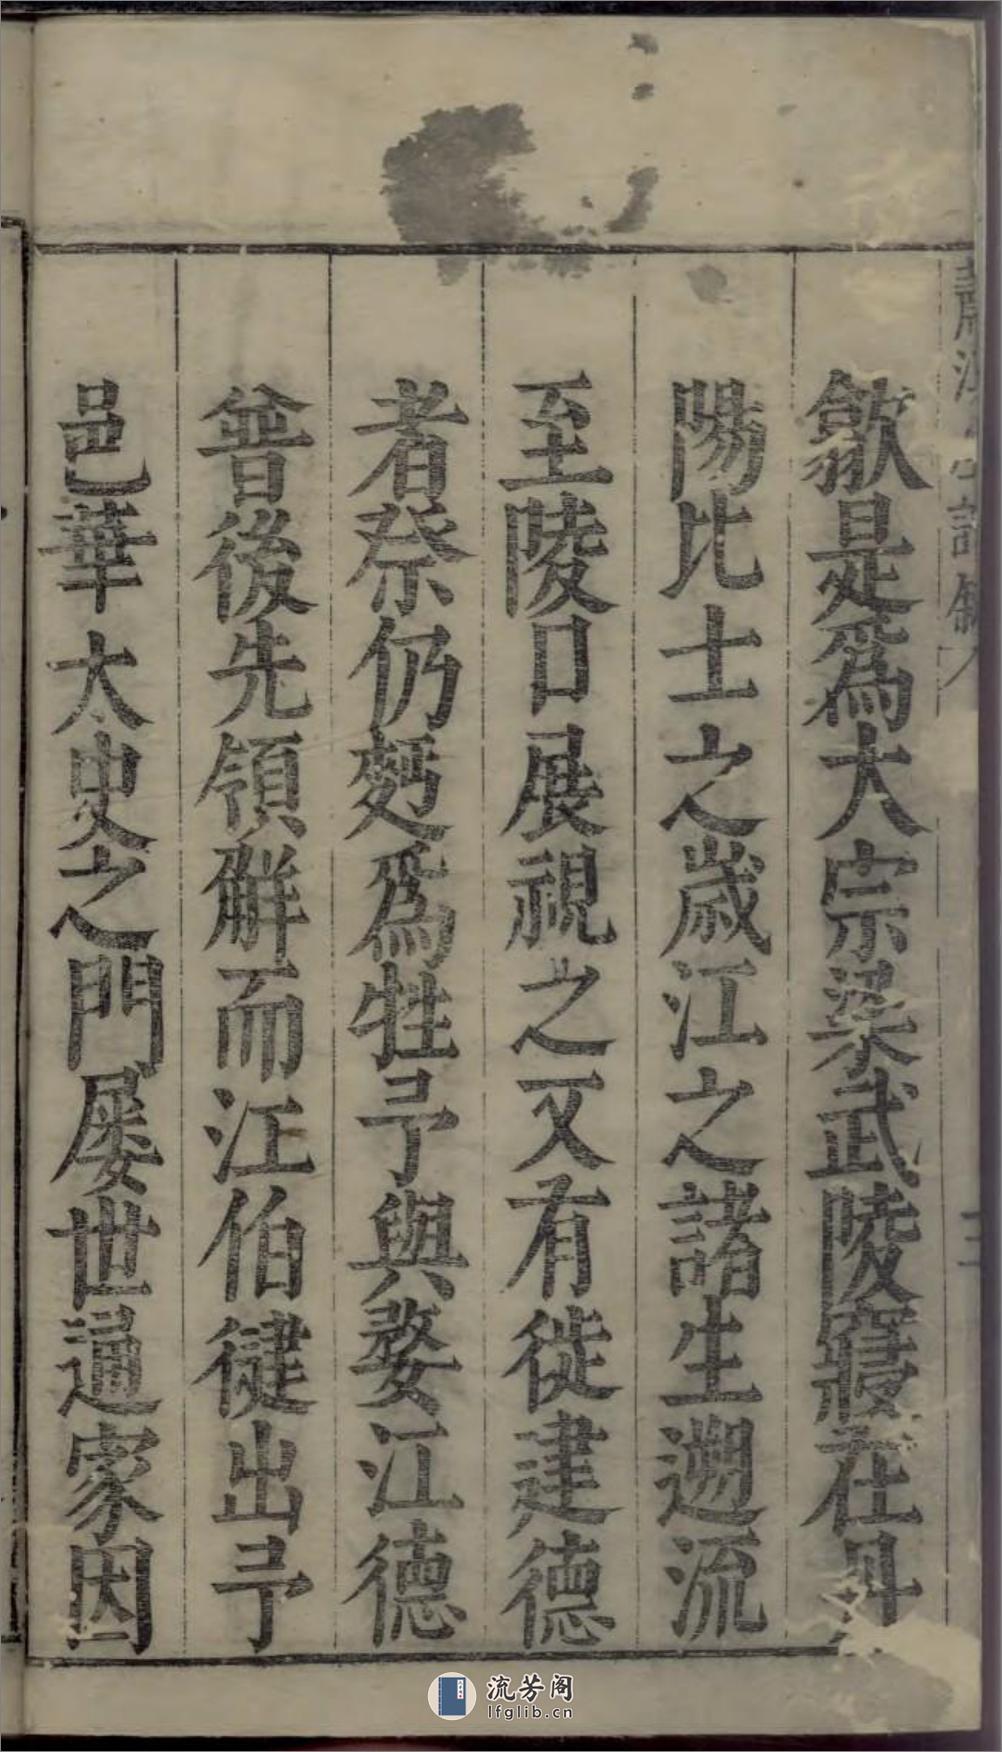 歙是爲大宗梁武陵寢在丹
陽比士之歲江之諸生遡流
至陵口展視之又有徙建德
者祭仍麪爲牲予與婺江德
曾後先領解而江伯徤出予
邑華太史之門屡世通家因
流芳阁
lfglib.cn